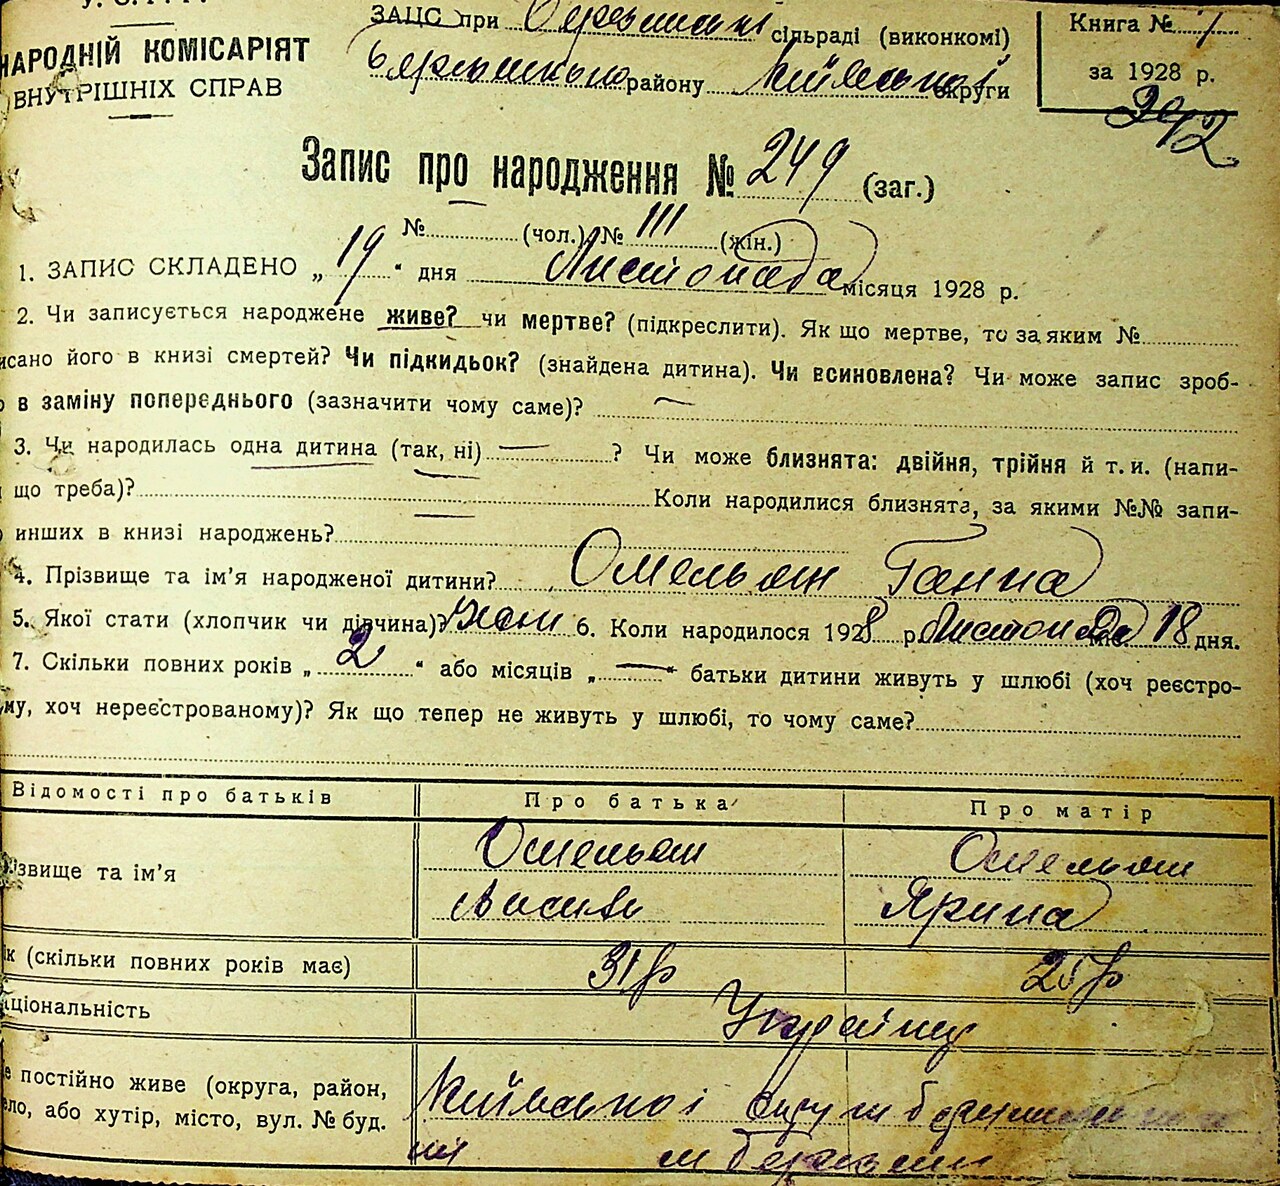 У. С. Р. Р.
НАРОДНІЙ КОМІСАРІЯТ
ВНУТРІШНІХ СПРАВ
ЗАЦС при сільраді (виконкомі)
району Київської округи
Книга № 7
за 1928 р.
392
Запис про народження № 249 (заг.)
№ (чол.) № 111 (жін.)
1. ЗАПИС СКЛАДЕНО „ 19 “ дня Листопада місяця 1928 р.
2. Чи записується народжене живе? чи мертве? (підкреслити). Як що мертве, то за яким №
исано його в книзі смертей? Чи підкидьок? (знайдена дитина). Чи всиновлена? Чи може запис зроб-
о в заміну попереднього (зазначити чому саме)? —
3. Чи народилась одна дитина (так, ні) — ? Чи може близнята: двійня, трійня й т. и. (напи-
що треба)? Коли народилися близнята, за якими №№ запи-
инших в книзі народжень?
4. Прізвище та ім’я народженої дитини? Омельян Ганна
5. Якої стати (хлопчик чи дівчина)? жін 6. Коли народилося 1928 р. Листопада 18 дня.
7. Скільки повних років „ 2 “ або місяців „ — “ батьки дитини живуть у шлюбі (хоч реєстро-
му, хоч нереєстрованому)? Як що тепер не живуть у шлюбі, то чому саме?
Відомості про батьків Про батька Про матір
різвище та ім’я Омельян Омельян
Василь Ярина
ік (скільки повних років має) 31 р 25 р
аціональність Українці
е постійно живе (округа, район, Київської округи
ело, або хутір, місто, вул. № буд. м